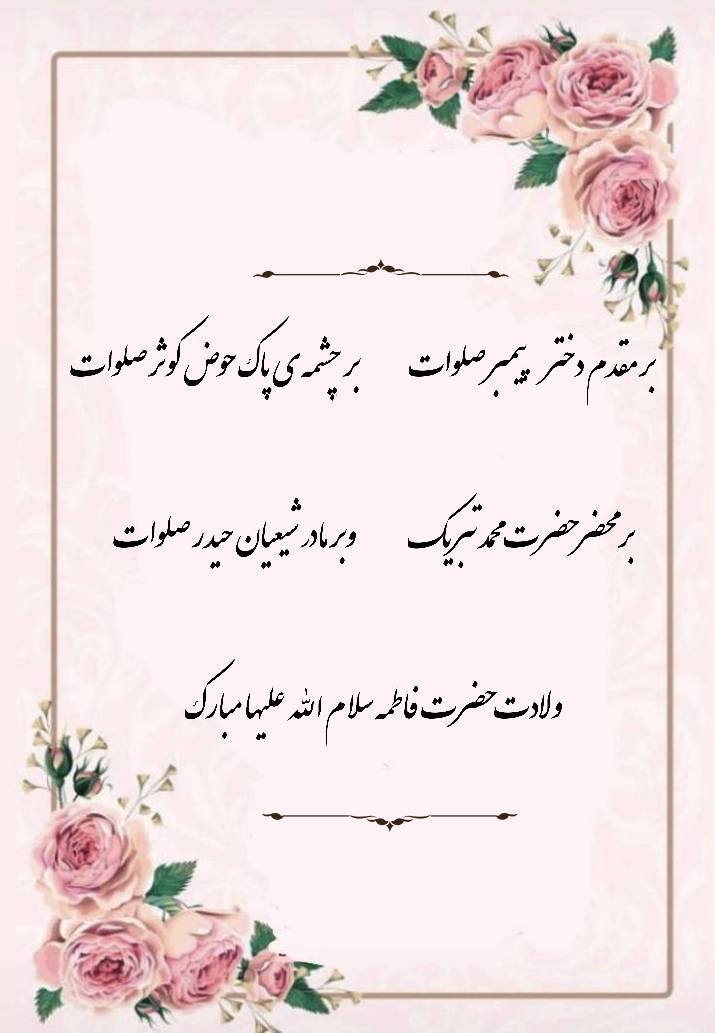 بر مقدم دختر پیمبر صلوات بر چشمه‌ی پاک حوض کوثر صلوات
بر محضر حضرت محمد تبریک و بر مادر شیعیان حیدر صلوات
ولادت حضرت فاطمه سلام الله علیها مبارک